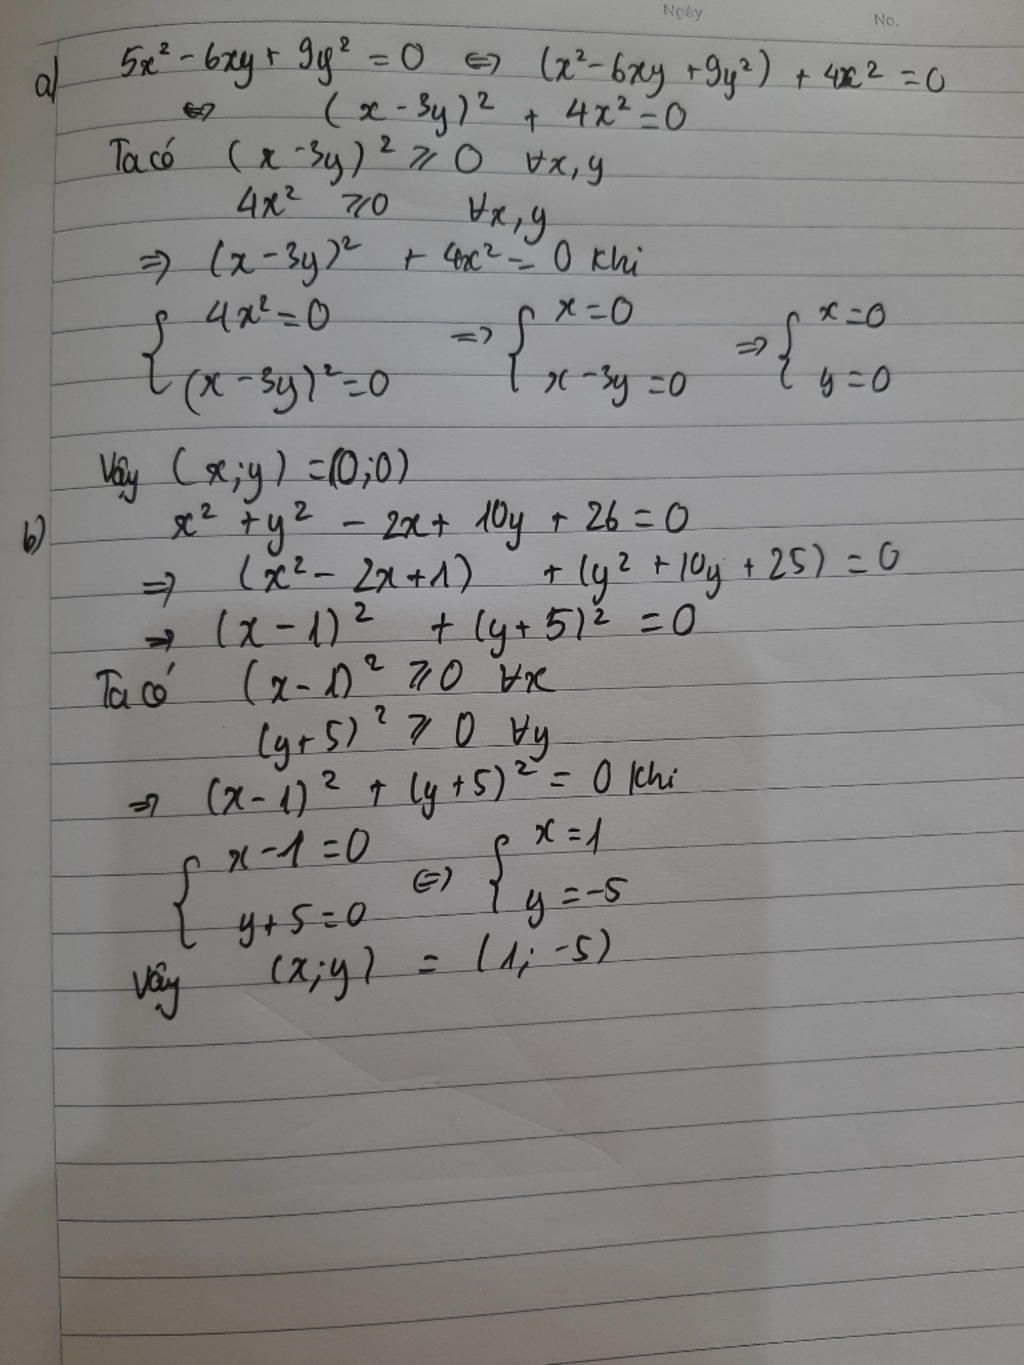 Ngày No.
a) 5x² - 6xy + 9y² = 0 ⇔ (x² - 6xy + 9y²) + 4x² = 0
⇔ (x - 3y)² + 4x² = 0
Ta có (x - 3y)² ⩾ 0 ∀x, y
4x² ⩾ 0 ∀x, y
⇒ (x - 3y)² + 4x² = 0 khi
{ 4x² = 0 ⇒ { x = 0 ⇒ { x = 0
(x - 3y)² = 0 x - 3y = 0 y = 0
Vậy (x; y) = (0; 0)
b) x² + y² - 2x + 10y + 26 = 0
⇒ (x² - 2x + 1) + (y² + 10y + 25) = 0
⇒ (x - 1)² + (y + 5)² = 0
Ta có (x - 1)² ⩾ 0 ∀x
(y + 5)² ⩾ 0 ∀y
⇒ (x - 1)² + (y + 5)² = 0 khi
{ x - 1 = 0 ⇔ { x = 1
y + 5 = 0 y = -5
Vậy (x; y) = (1; -5)